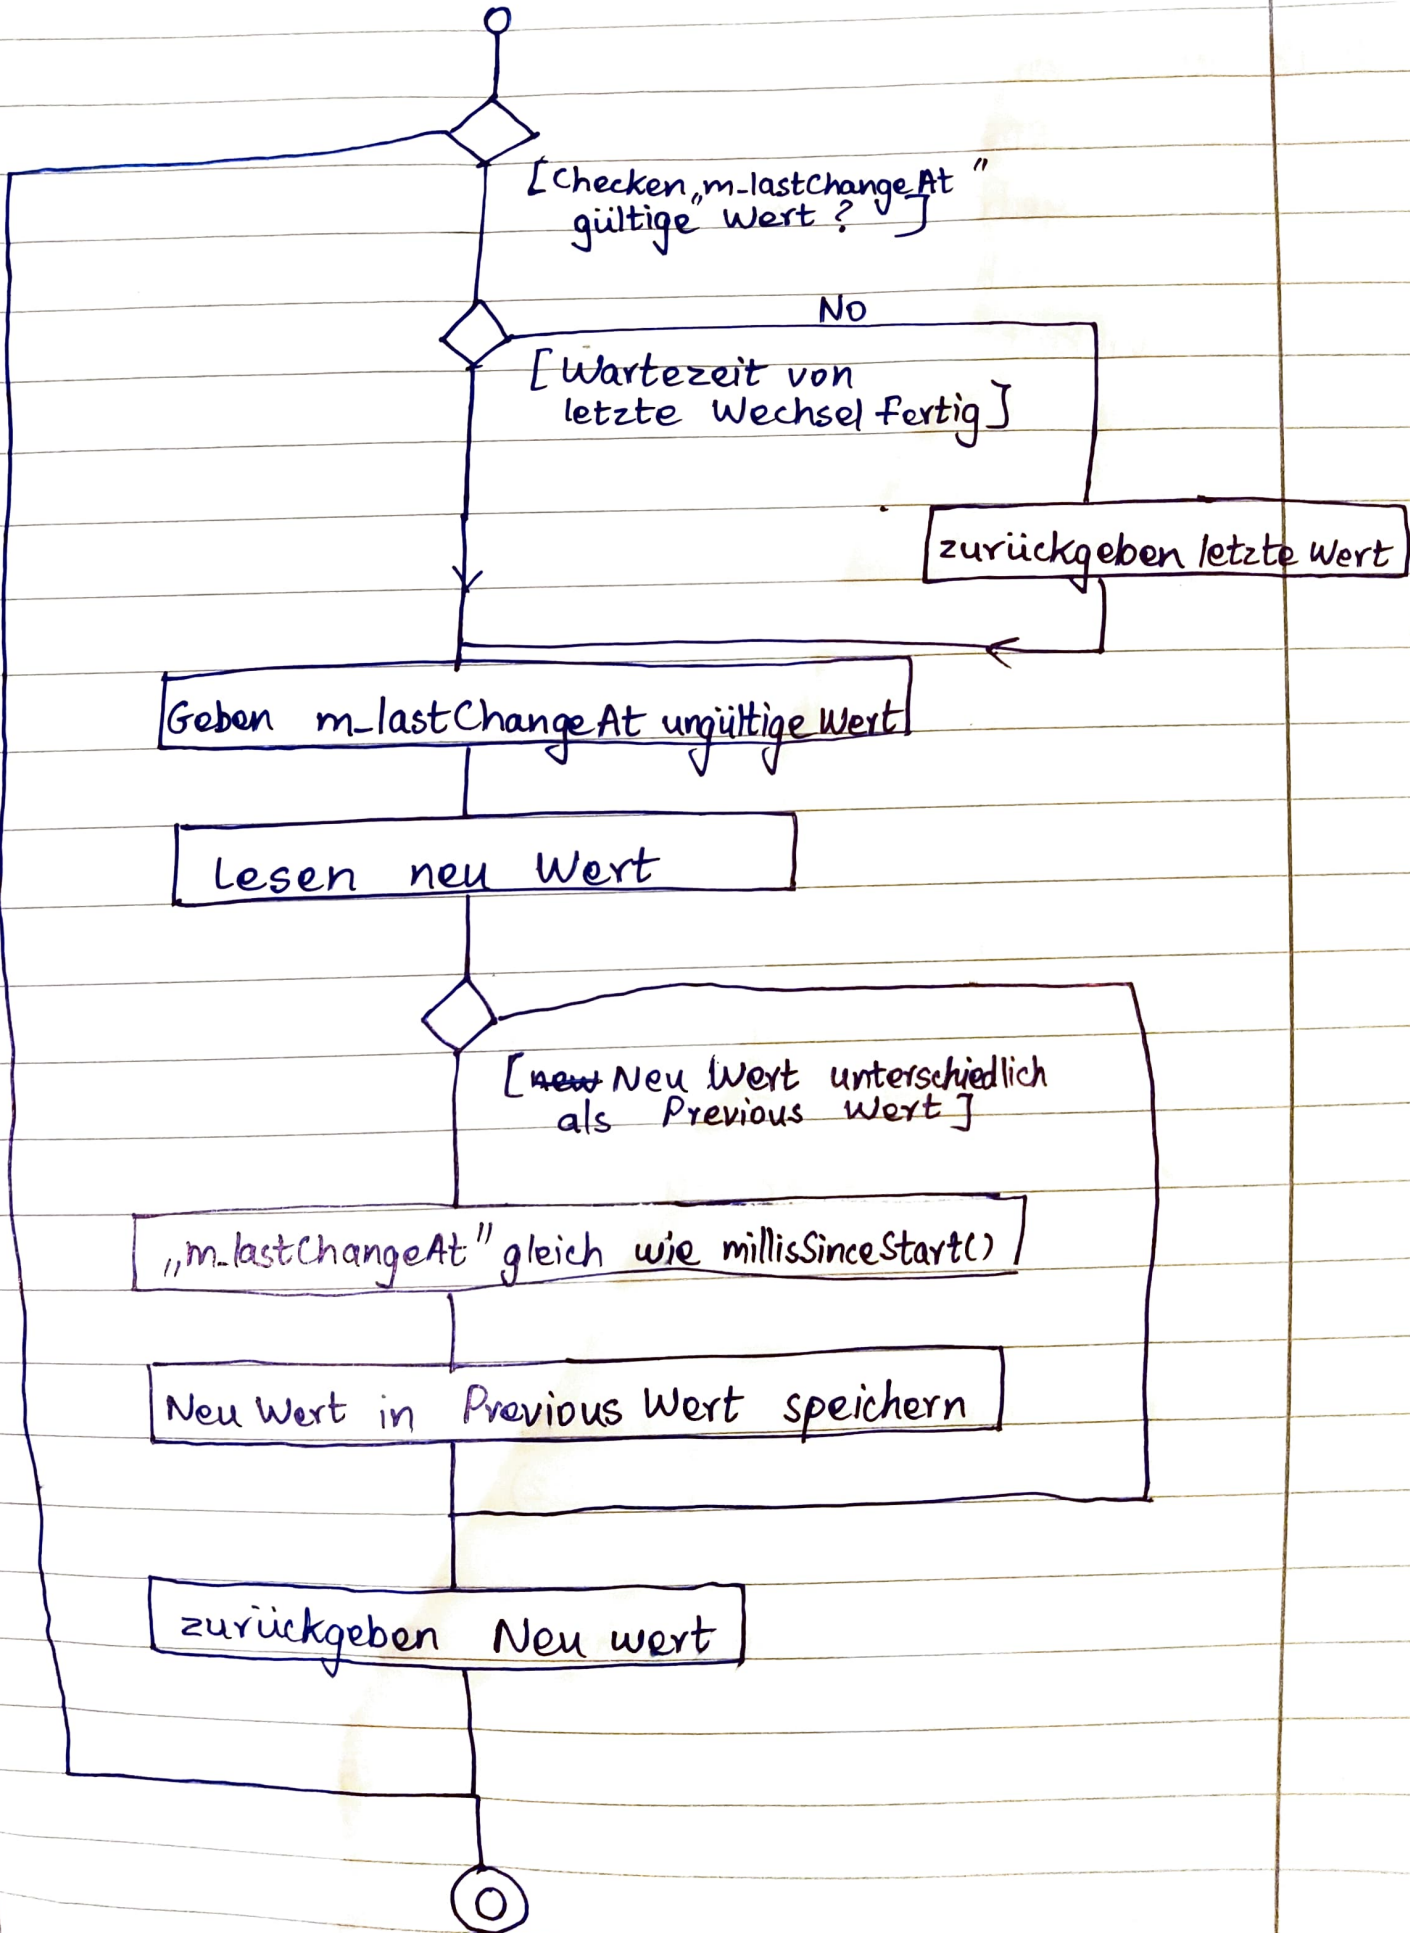 [Checken „m-lastChangeAt"
gültige Wert ? ]
No
[Wartezeit von
letzte Wechsel fertig]
zurückgeben letzte Wert
Geben m-lastChangeAt ungültige Wert
Lesen neu Wert
[new Neu Wert unterschiedlich
als Previous Wert]
„m-lastChangeAt" gleich wie millisSinceStart()
Neu Wert in Previous Wert speichern
zurückgeben Neu wert